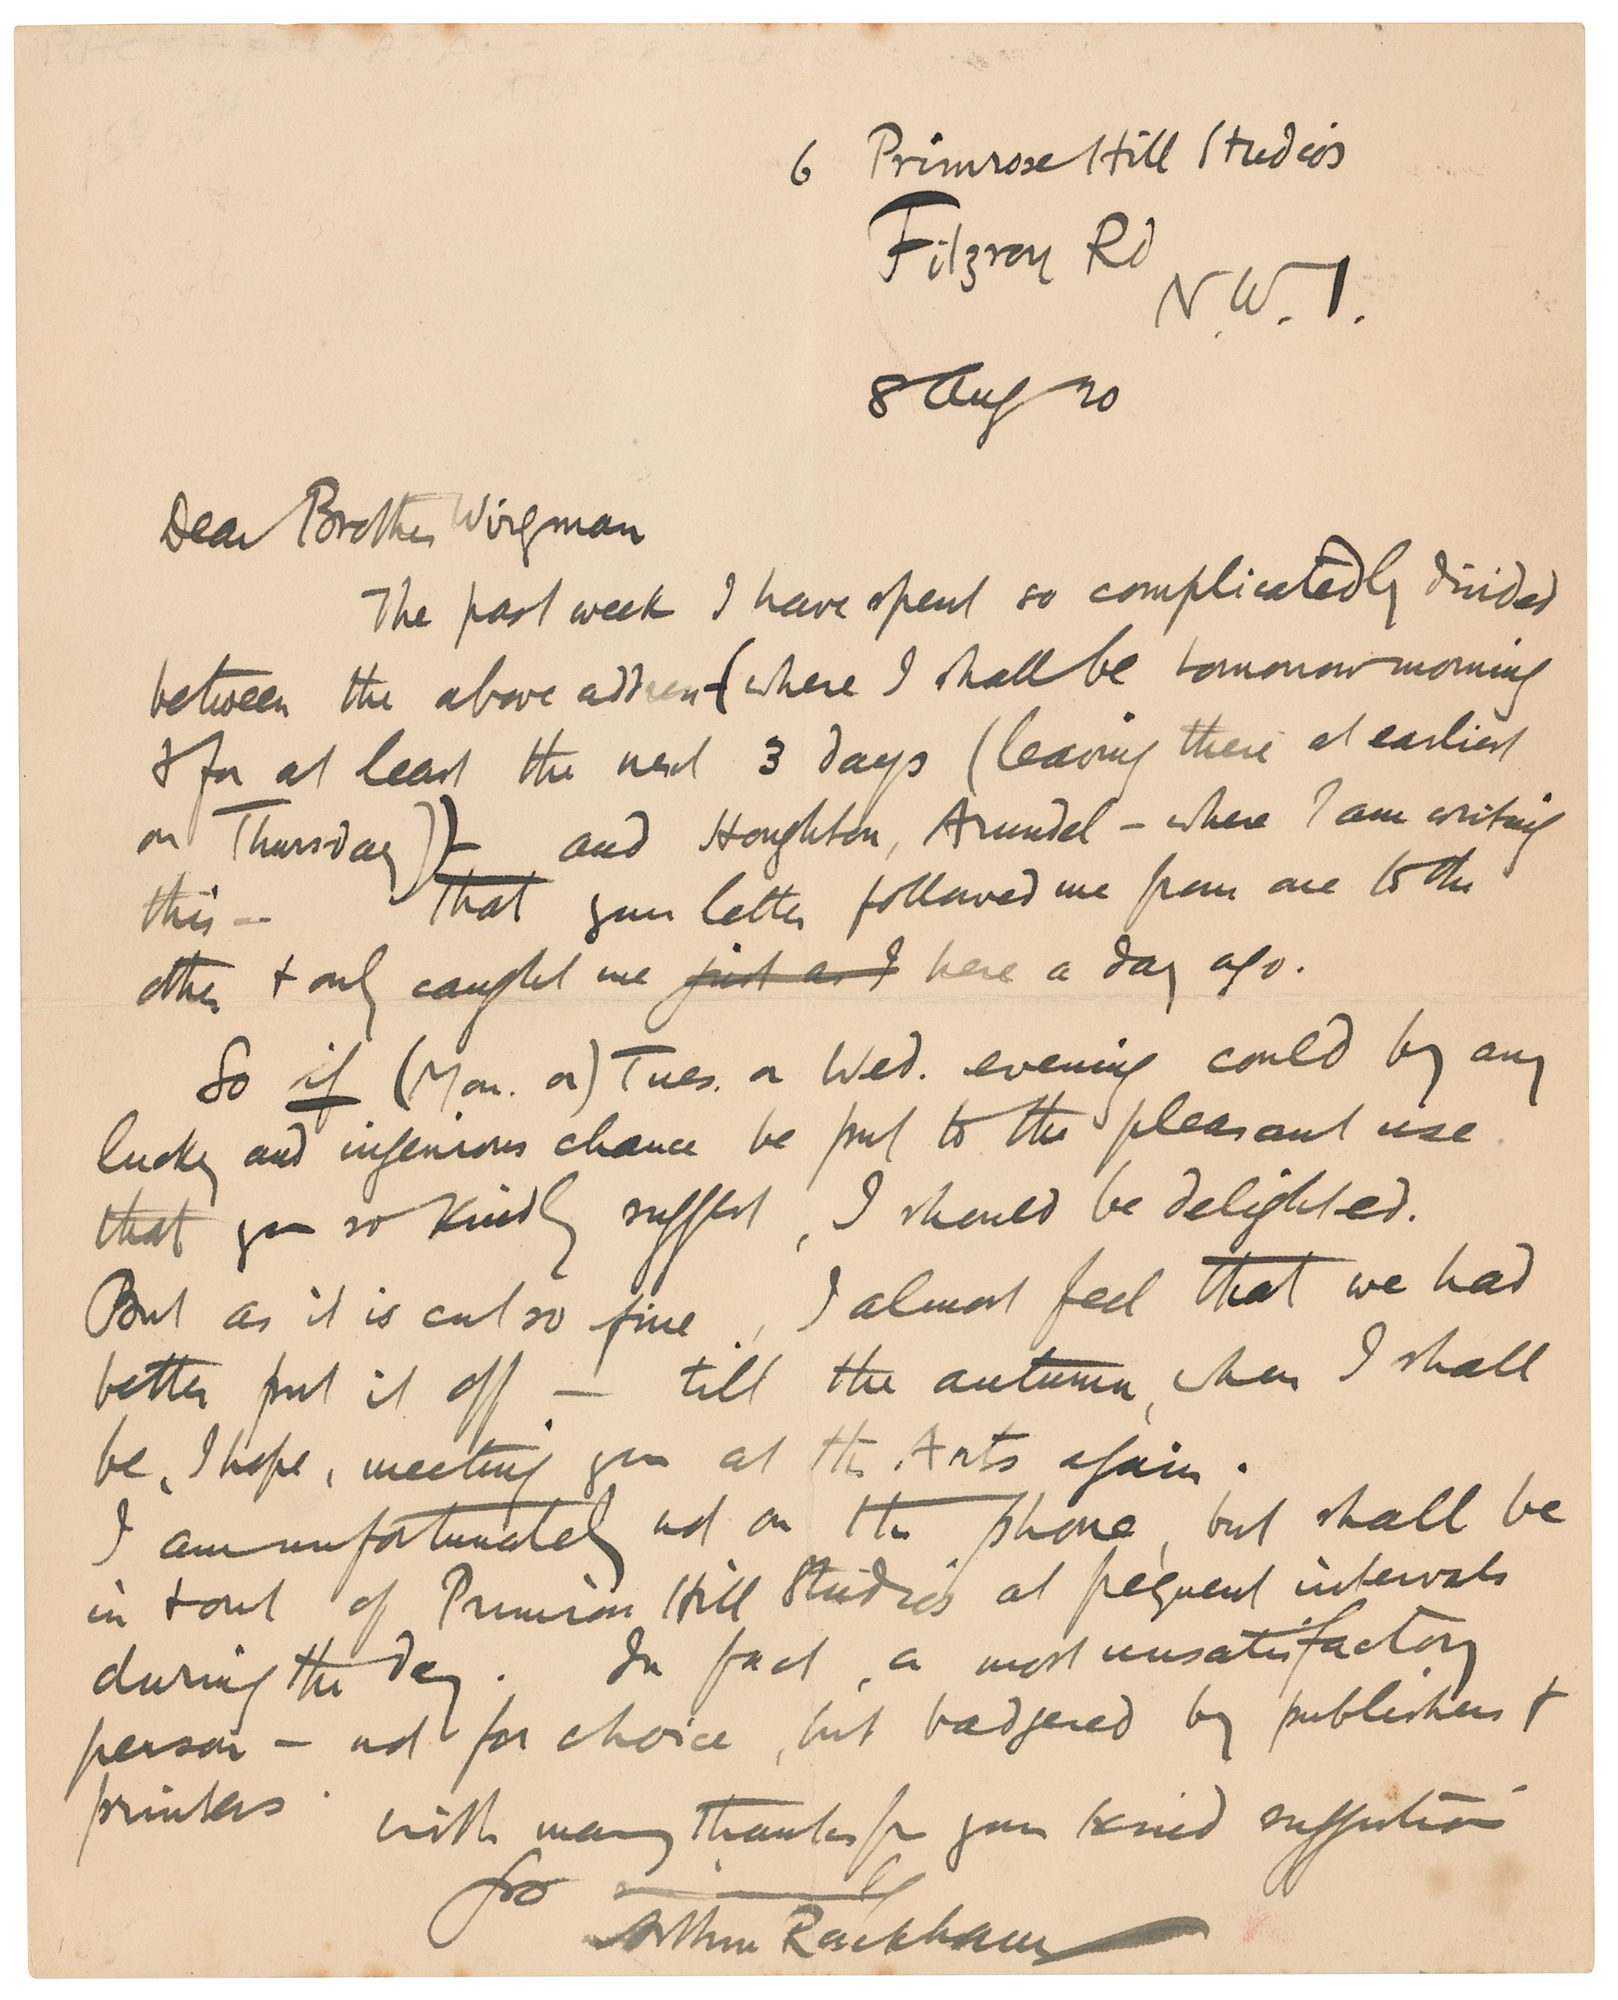 6 Primrose Hill Studios
Fitzroy Rd
N.W.1.
8 Aug 20
Dear Brother Wirgman
The past week I have spent so complicatedly divided
between the above address (where I shall be tomorrow morning
& for at least the next 3 days (leaving there at earliest
on Thursday)) – and Houghton, Arundel – where I am writing
this – that your letter followed me from one to the
other & only caught me just as I here a day ago.
So if (Mon. or) Tues. or Wed. evening could by any
lucky and ingenious chance be put to the pleasant use
that you so kindly suggest, I should be delighted.
But as it is cut so fine, I almost feel that we had
better put it off – till the autumn, when I shall
be, I hope, meeting you at the Arts again.
I am unfortunately not on the phone, but shall be
in & out of Primrose Hill Studios at frequent intervals
during the day. In fact, a most unsatisfactory
person – not for choice, but badgered by publishers &
printers.
with many thanks for your kind suggestion
Yrs sincerely
Arthur Rackham